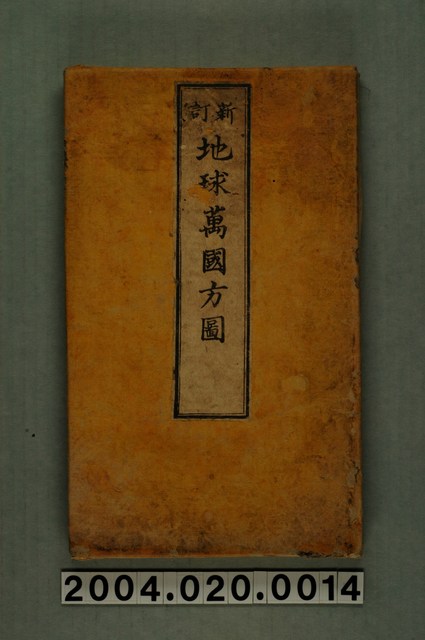 新訂
地球萬國方圖
2004.020.0014